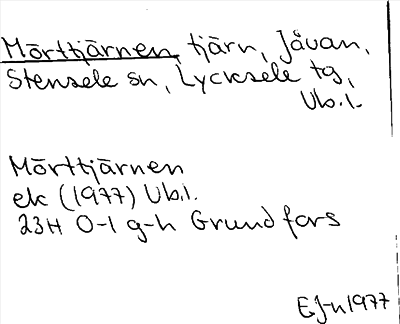 Mörttjärnen, tjärn, Jåvan,
Stensele sn, Lycksele tg,
Vb.l.
Mörttjärnen
ek (1977) Vb.l.
23H 0-1 g-h Grundfors
EJ-n 1977